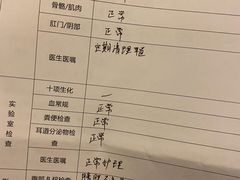 骨骼/肌肉 正常
肛门/阴部 正常
医生医嘱 近期清理
实验室检查
十项生化 —
血常规 正常
粪便检查 正常
耳道分泌物检查 正常
医生医嘱 正常护理